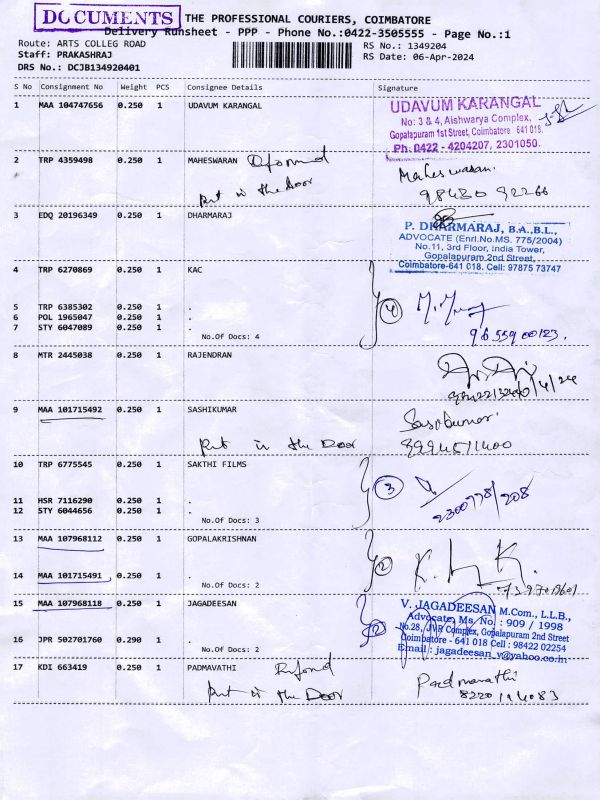 DOCUMENTS
THE PROFESSIONAL COURIERS, COIMBATORE
Delivery Runsheet - PPP - Phone No.:0422-3505555 - Page No.:1
Route: ARTS COLLEG ROAD
RS No.: 1349204
Staff: PRAKASHRAJ
RS Date: 06-Apr-2024
DRS No.: DCJB134920401
S No Consignment No Weight PCS Consignee Details Signature
1 MAA 104747656 0.250 1 UDAVUM KARANGAL
UDAVUM KARANGAL
No: 3 & 4, Aishwarya Complex,
Gopalapuram 1st Street, Coimbatore 641 018.
Ph: 0422 - 4204207, 2301050.
2 TRP 4359498 0.250 1 MAHESWARAN
Put in the Door
Maheswaran
98430 92266
3 EDQ 20196349 0.250 1 DHARMARAJ
P. DHARMARAJ, B.A.,B.L.,
ADVOCATE (Enrl.No.MS. 775/2004)
No.11, 3rd Floor, India Tower,
Gopalapuram 2nd Street,
Coimbatore-641 018. Cell: 97875 73747
4 TRP 6270869 0.250 1 KAC
5 TRP 6385302 0.250 1 .
6 POL 1965047 0.250 1 .
7 STY 6047089 0.250 1 .
No.Of Docs: 4
4
96559 00123.
8 MTR 2445038 0.250 1 RAJENDRAN
9 MAA 101715492 0.250 1 SASHIKUMAR
Put in the Door
Sasikumar
9994511400
10 TRP 6775545 0.250 1 SAKTHI FILMS
11 HSR 7116290 0.250 1 .
12 STY 6044656 0.250 1 .
No.Of Docs: 3
3
2300778/208
13 MAA 107968112 0.250 1 GOPALAKRISHNAN
14 MAA 101715491 0.250 1 .
No.Of Docs: 2
2
15 MAA 107968118 0.250 1 JAGADEESAN
16 JPR 502701760 0.290 1 .
No.Of Docs: 2
2
V. JAGADEESAN M.Com., L.L.B.,
Advocate, Ms. No. : 909 / 1998
No.28, JVR Complex, Gopalapuram 2nd Street
Coimbatore - 641 018 Cell : 98422 02254
Email : jagadeesan_v@yahoo.co.in
17 KDI 663419 0.250 1 PADMAVATHI
Put in the Door
Padmavathi